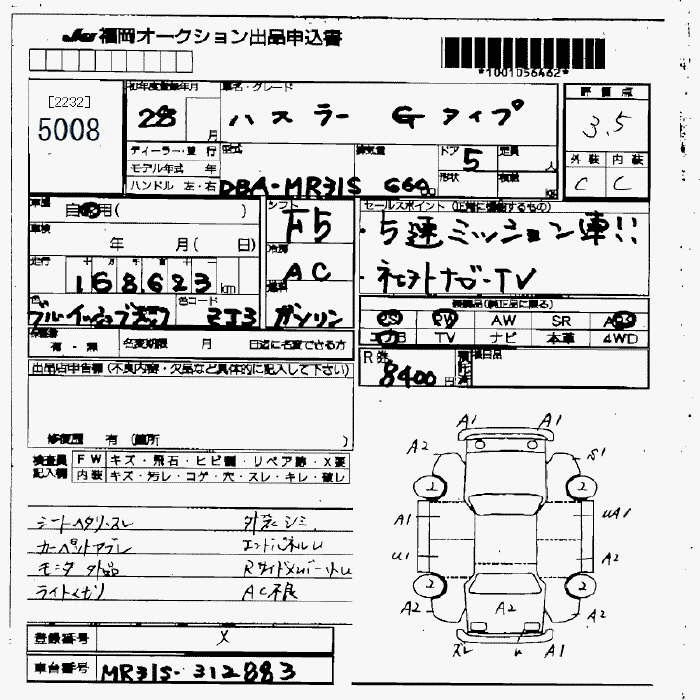 JU福岡オークション出品申込書
*1001056462*
[2232]
5008
初年度登録年月
28 月
車名・グレード
ハスラー Gタイプ
評価点
3.5
ディーラー・並行
モデル年式 年
ハンドル 左・右
型式
DBA-MR31S
排気量
660cc
ドア
5
形状
定員
人
積載
kg
外装 内装
C C
車歴
自家用( )
シフト
F5
セールスポイント (正常に機能するもの)
・5速ミッション車!!
・社外ナビ-TV
車検
年 月( 日)
冷房
AC
走行
十 万 千 百 十 一
168,623 km
燃料
ガソリン
色
ブルーイッシュブラック
色コード
ZJ3
装備品(純正品に限る)
PS PW AW SR ABS
エアB TV ナビ 本革 4WD
保証書
有・無
名変期限 月 日迄に名変できる方
R券
8400円
後日品
出品店申告欄 (不良内容・欠品など具体的に記入して下さい)
修復歴 有 (箇所 )
検査員 FW キズ・飛石・ヒビ割・リペア跡・X要
記入欄 内装 キズ・汚レ・コゲ・穴・スレ・キレ・破レ
シートヘタリ・スレ 外装シミ
カーペットヤブレ エンドパネルU
モニタ外品 RサイドメンバートメU
ライトメガリ AC不良
登録番号 X
車台番号 MR31S-312883
A1 A1
A2 S1
2 2
A1 UA1
U1 A2
2 2
A2 A2 A2
スレ U A1